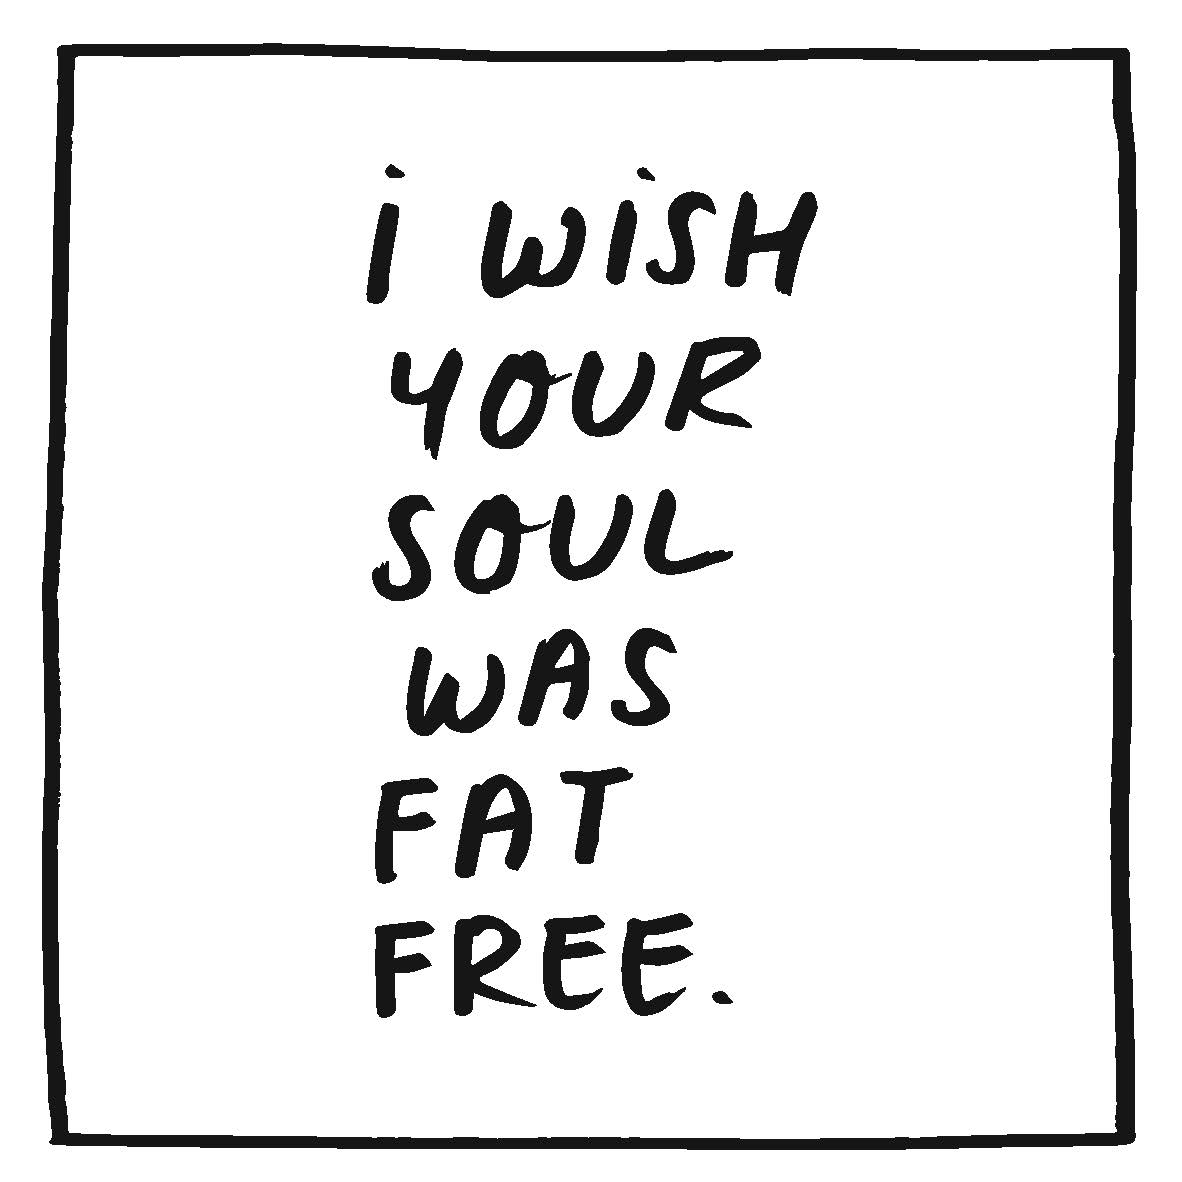 i WiSH
YOUR
SOUL
WAS
FAT
FREE.